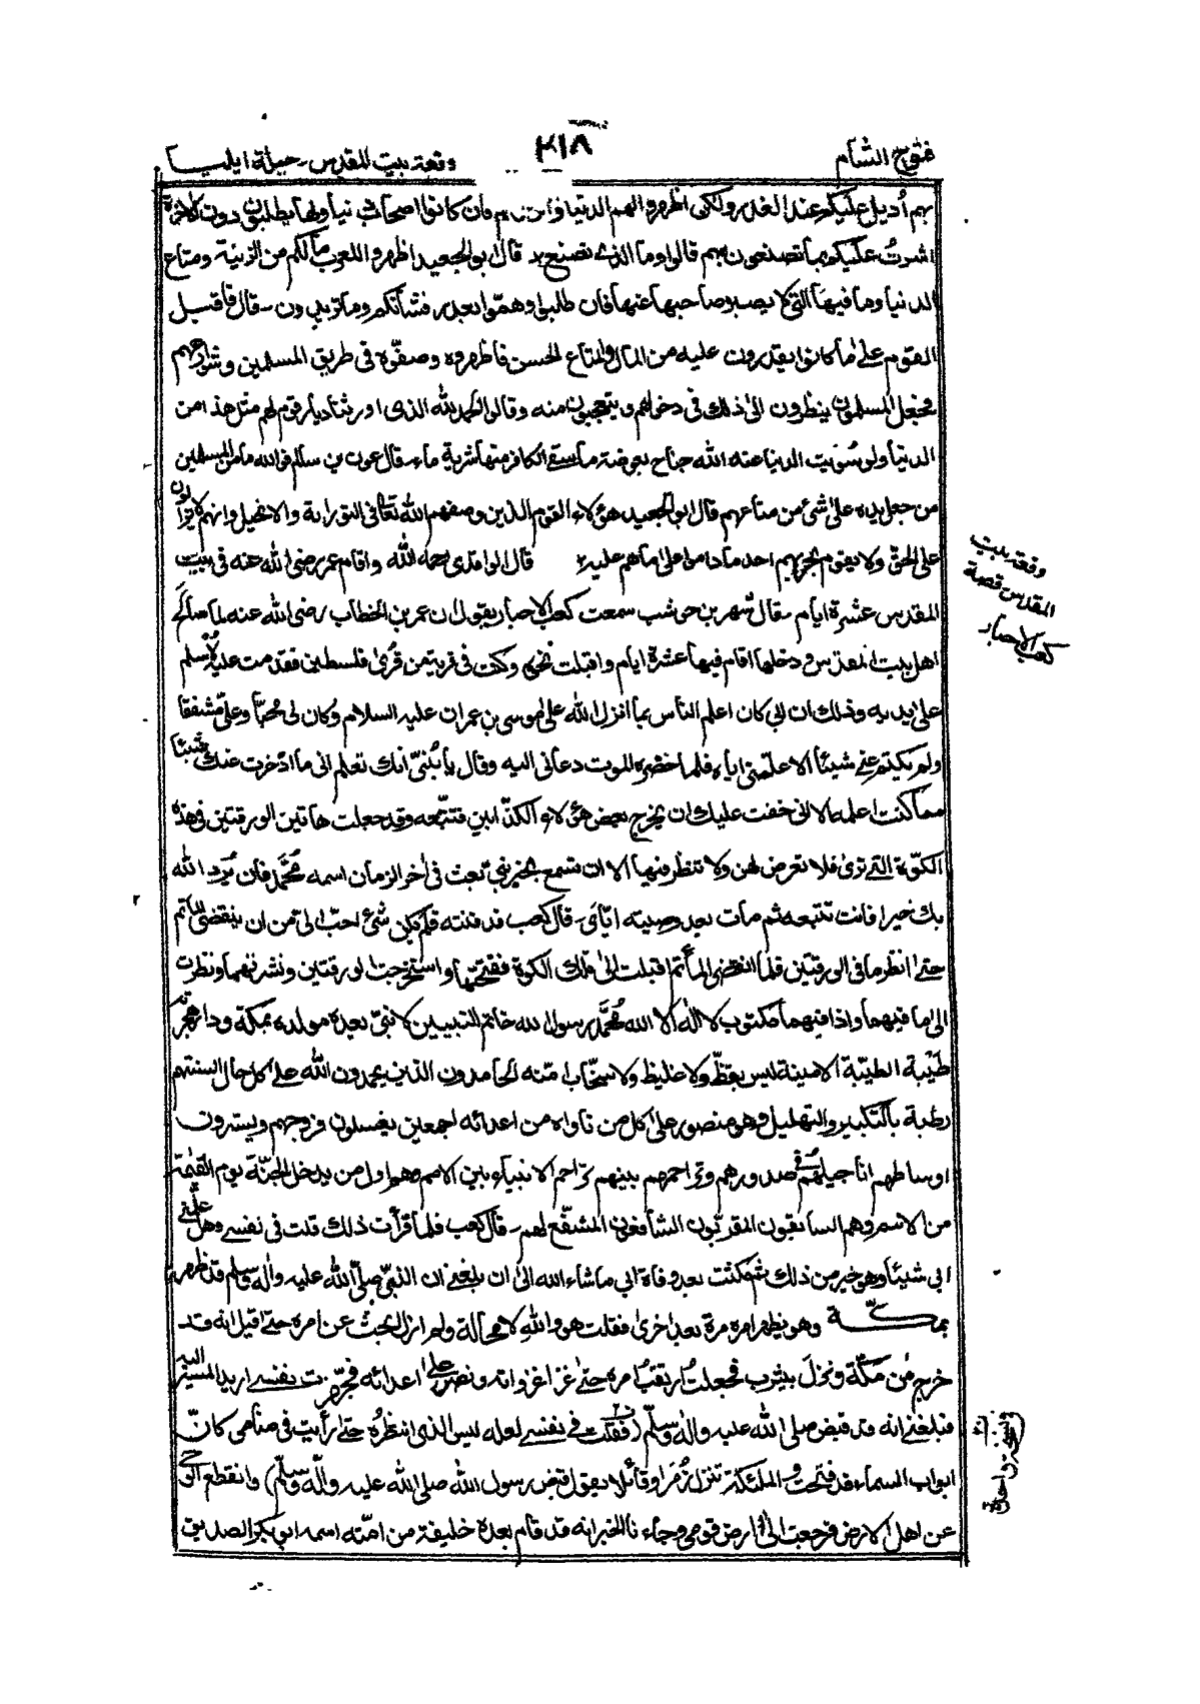 فتوح الشام
٢١٨
وقعة بيت المقدس - حيلة ايليا
بهم أُديل عليكم عند الغدر ولكن اظهروا لهم الدنيا فان كانوا اصحاب دنيا ولها يطلبون دون الاخرة
اشرتُ عليكم بما تصنعون بهم قالوا وما الذى نصنع قال ابو الجعيد اظهروا للعرب مالكم من الزينة ومتاع
الدنيا وما فيها التى لا يصبر صاحبها عنها فان طلبوا وهمّوا بعد رفشأنكم وما تريدون - قال فاقبل
القوم على ما كانوا يقدرون عليه من المال والمتاع الحسن فاظهروه وصفّوه فى طريق المسلمين وشوارعهم
فجعل المسلمون ينظرون الى ذلك فى دخولهم ويتعجبون منه وقالوا الحمد لله الذى اورثنا ديار قوم لهم مثل هذا من
الدنيا ولو سُوّيت الدنيا عند الله جناح بعوضة ما سقى الكافر منها شربة ماء - قال عون بن سالم فو الله ما من المسلمين
من جعل يده على شئ من متاعهم قال ابو الجعيد هؤلاء القوم الذين وصفهم الله تعالى فى التوراية والانجيل وانهم لا يزالون
على الحقّ ولا يقوم لحربهم احد ما داموا على ما هم عليه قال الواقدى رحمه الله واقام عمر رضى الله عنه فى بيت
المقدس عشرة ايام - قال شهر بن حوشب سمعت كعب الاحبار يقول ان عمر بن الخطاب رضى الله عنه لما صالح
اهل بيت المقدس ودخلها اقام فيها عشرة ايام واقبلت نحوه وكنت فى قرية من قُرىٰ فلسطين فقدمت عليه لأُسلم
على يديه وذلك ان ابى كان اعلم الناس بما انزل الله على موسى بن عمران عليه السلام وكان لى محبّا وعلىّ مشفقا
ولم يكتم عنى شيئا الا علّمنى اياه فلما حضره الموت دعانى اليه وقال يا بُنىّ انك تعلم انى ما ادّخرت عنك شيئا
مما كنت اعلمه الا انى خفت عليك ان يخرج بعض هؤلاء الكذّابين فتتبّعه وقد جعلت هاتين الورقتين فى هذه
الكوّة التى ترىٰ فلا تعرض لهن ولا تنظر فيها الا ان تسمع بخبر نبى يبعث فى اٰخر الزمان اسمه محمّد فان يُرِد الله
بك خيرا فانت تتبعه ثم مات بعد وصيته ايّاى - قال كعب فدفنته فلم يكن شئ احبّ الىّ من ان ينقضى المأتم
حتى انظر ما فى الورقتين فلما انقضى المأتم اقبلت الى تلك الكوة ففتحتها واستخرجت الورقتين ونشرتهما ونظرت
الى ما فيهما واذا فيهما مكتوب لا الٰه الا الله مُحَمَّد رسول الله خاتم النبيين لا نبىّ بعده مولده بمكة ودار هجرته
طَيبة الطيّبة الامينة ليس بفظّ ولا غليظ ولا سخّاب امّته الحامدون الذين يحمدون الله على كل حال السنتهم
رطبة بالتكبير والتهليل وهو منصور على كل من ناواه من اعدائه اجمعين يغسلون فروجهم ويسترون
اوساطهم اناجيلهم فى صدورهم وتراحمهم بينهم تراحم الانبياء بين الامم وهم اول من يدخل الجنّة يوم القيٰمة
من الامم وهم السابقون المقربون الشافعون المشفّع لهم - قال كعب فلما قرأت ذلك قلت فى نفسى وهل علّمنى
ابى شيئا وهى خير من ذلك ثم مكثت بعد وفاة ابى ما شاء الله الى ان بلغنى ان النبى صلى الله عليه واٰله وسلم قد ظهر
بمكّة وهو يظهر امره مرة بعد اخرىٰ فقلت هو والله لا محالة ولم ازل ابحث عن امره حتى قيل انه قد
خرج من مَكّة ونزل بيثرب فجعلتُ ارتقبُ امره حتى غزا غزواته ونصر على اعدائه فتجهزت بنفسى اريد المسير اليه
فبلغنى انه قد قبض صلى الله عليه واٰله وسلّم (فقلت فى نفسى لعله ليس الذى انتظرُه حتى رأيت فى منامى كانّ
ابواب السماء قد فتحت والملئكة تنزل زُمَرا وقائلا يقول قبض رسول الله صلى الله عليه واٰله وسلّم) وانقطع الوحى
عن اهل الارض فرجعت الى ارض قومى وجاءنا الخبر انه قد قام بعده خليفة من امّته اسمه ابو بكر الصديق
وقعة بيت
المقدس قصة
كعب الاحبار
فى نسخة واحدة